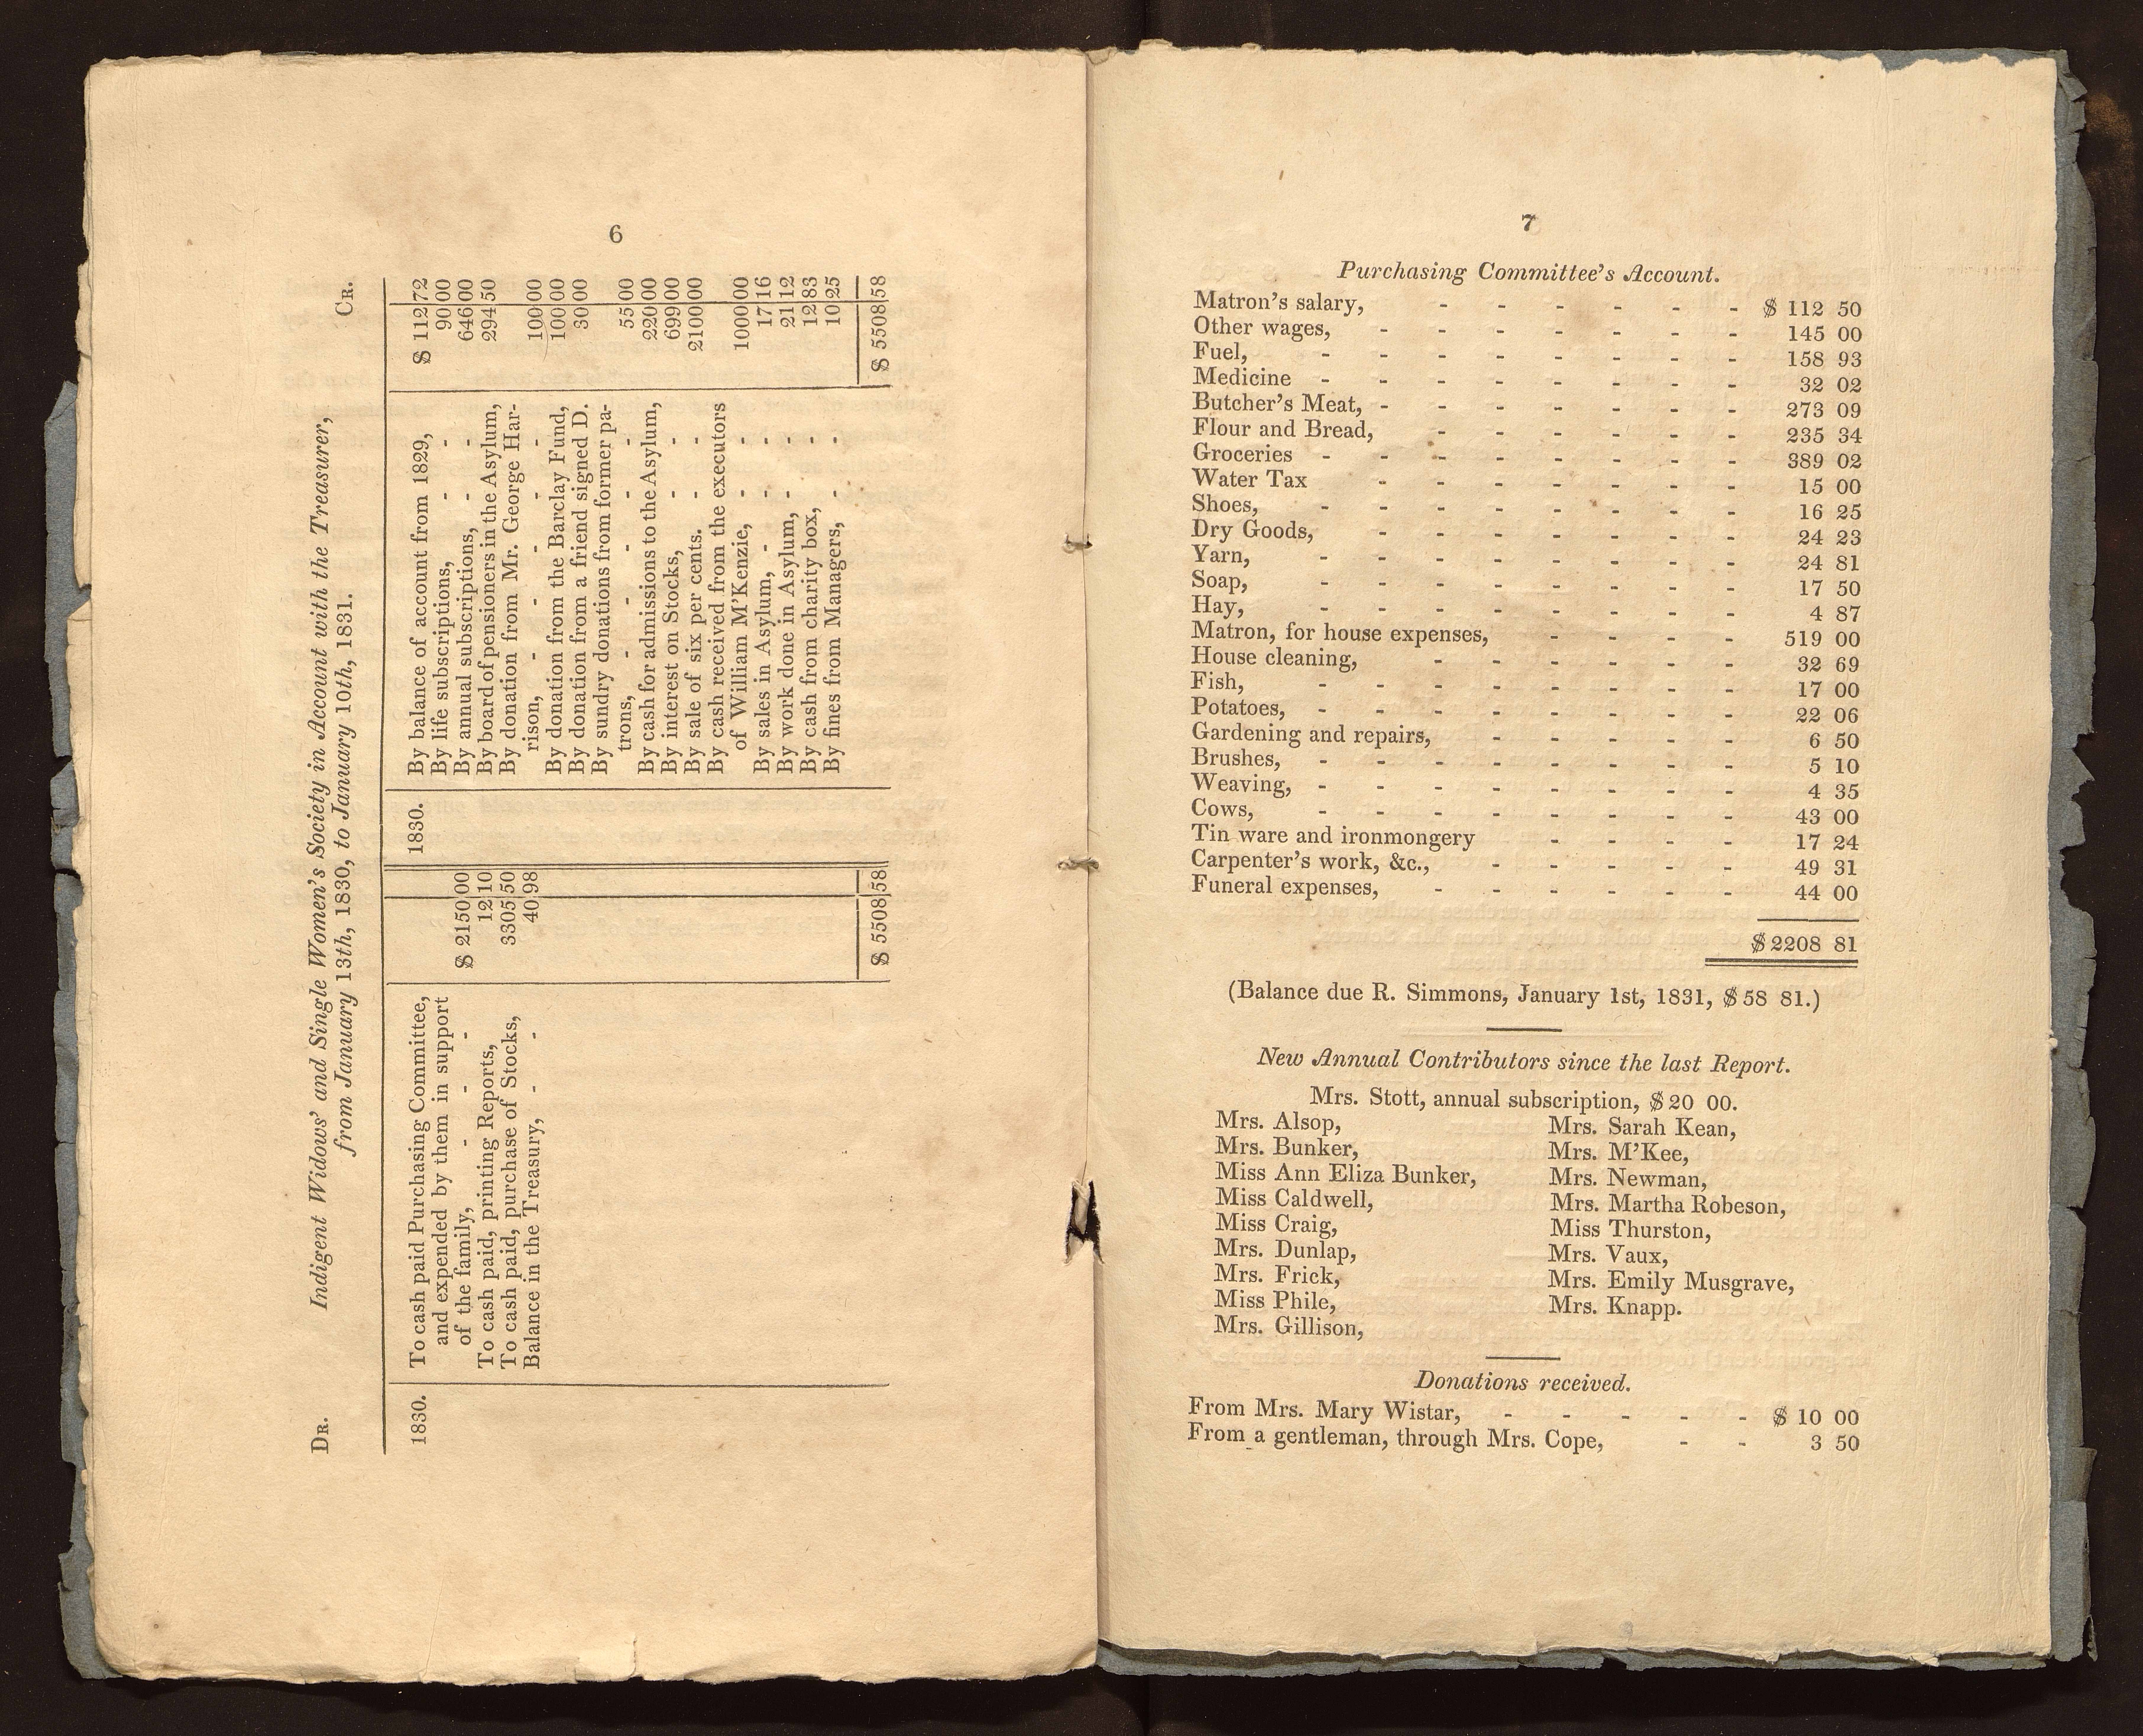 6
DR. Indigent Widows' and Single Women's Society in Account with the Treasurer, CR.
from January 13th, 1830, to January 10th, 1831.
1830.
To cash paid Purchasing Committee,
and expended by them in support
of the family, - - - $ 2150 00
To cash paid, printing Reports, 12 10
To cash paid, purchase of Stocks, 3305 50
Balance in the Treasury, - - 40 98
$ 5508 58
1830.
By balance of account from 1829, $ 112 72
By life subscriptions, - - 90 00
By annual subscriptions, - - 646 00
By board of pensioners in the Asylum, 294 50
By donation from Mr. George Har-
rison, - - - - - 100 00
By donation from the Barclay Fund, 100 00
By donation from a friend signed D. 30 00
By sundry donations from former pa-
trons, - - - - - 55 00
By cash for admissions to the Asylum, 220 00
By interest on Stocks, - - 699 00
By sale of six per cents. - - 2100 00
By cash received from the executors
of William M'Kenzie, - - 1000 00
By sales in Asylum, - - - 17 16
By work done in Asylum, - - 21 12
By cash from charity box, - 12 83
By fines from Managers, - - 10 25
$ 5508 58
7
Purchasing Committee's Account.
Matron's salary, - - - - - - $ 112 50
Other wages, - - - - - - - 145 00
Fuel, - - - - - - - - 158 93
Medicine - - - - - - - - 32 02
Butcher's Meat, - - - - - - - 273 09
Flour and Bread, - - - - - - 235 34
Groceries - - - - - - - - 389 02
Water Tax - - - - - - - 15 00
Shoes, - - - - - - - - 16 25
Dry Goods, - - - - - - - 24 23
Yarn, - - - - - - - - 24 81
Soap, - - - - - - - - 17 50
Hay, - - - - - - - - 4 87
Matron, for house expenses, - - - - 519 00
House cleaning, - - - - - - 32 69
Fish, - - - - - - - - 17 00
Potatoes, - - - - - - - - 22 06
Gardening and repairs, - - - - - 6 50
Brushes, - - - - - - - - 5 10
Weaving, - - - - - - - - 4 35
Cows, - - - - - - - - 43 00
Tin ware and ironmongery - - - - 17 24
Carpenter's work, &c., - - - - - 49 31
Funeral expenses, - - - - - - 44 00
$ 2208 81
(Balance due R. Simmons, January 1st, 1831, $ 58 81.)
New Annual Contributors since the last Report.
Mrs. Stott, annual subscription, $ 20 00.
Mrs. Alsop,
Mrs. Bunker,
Miss Ann Eliza Bunker,
Miss Caldwell,
Miss Craig,
Mrs. Dunlap,
Mrs. Frick,
Miss Phile,
Mrs. Gillison,
Mrs. Sarah Kean,
Mrs. M'Kee,
Mrs. Newman,
Mrs. Martha Robeson,
Miss Thurston,
Mrs. Vaux,
Mrs. Emily Musgrave,
Mrs. Knapp.
Donations received.
From Mrs. Mary Wistar, - - - - - $ 10 00
From a gentleman, through Mrs. Cope, - - 3 50